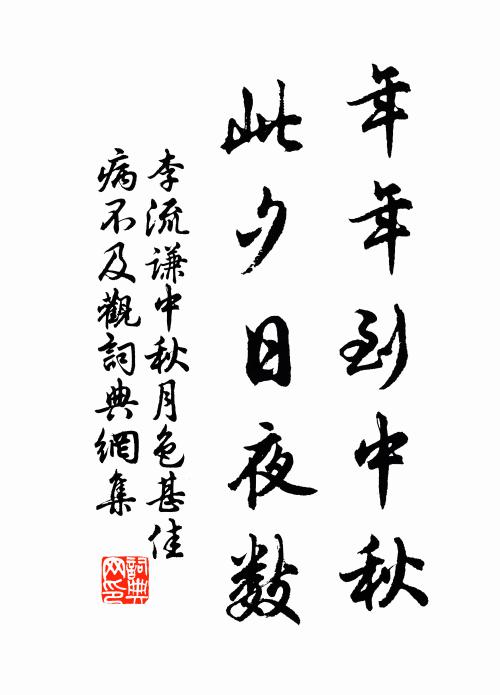 年年到中秋
此夕日夜数
李流谦中秋月色甚佳
病不及觀詞典網集
詞典网印